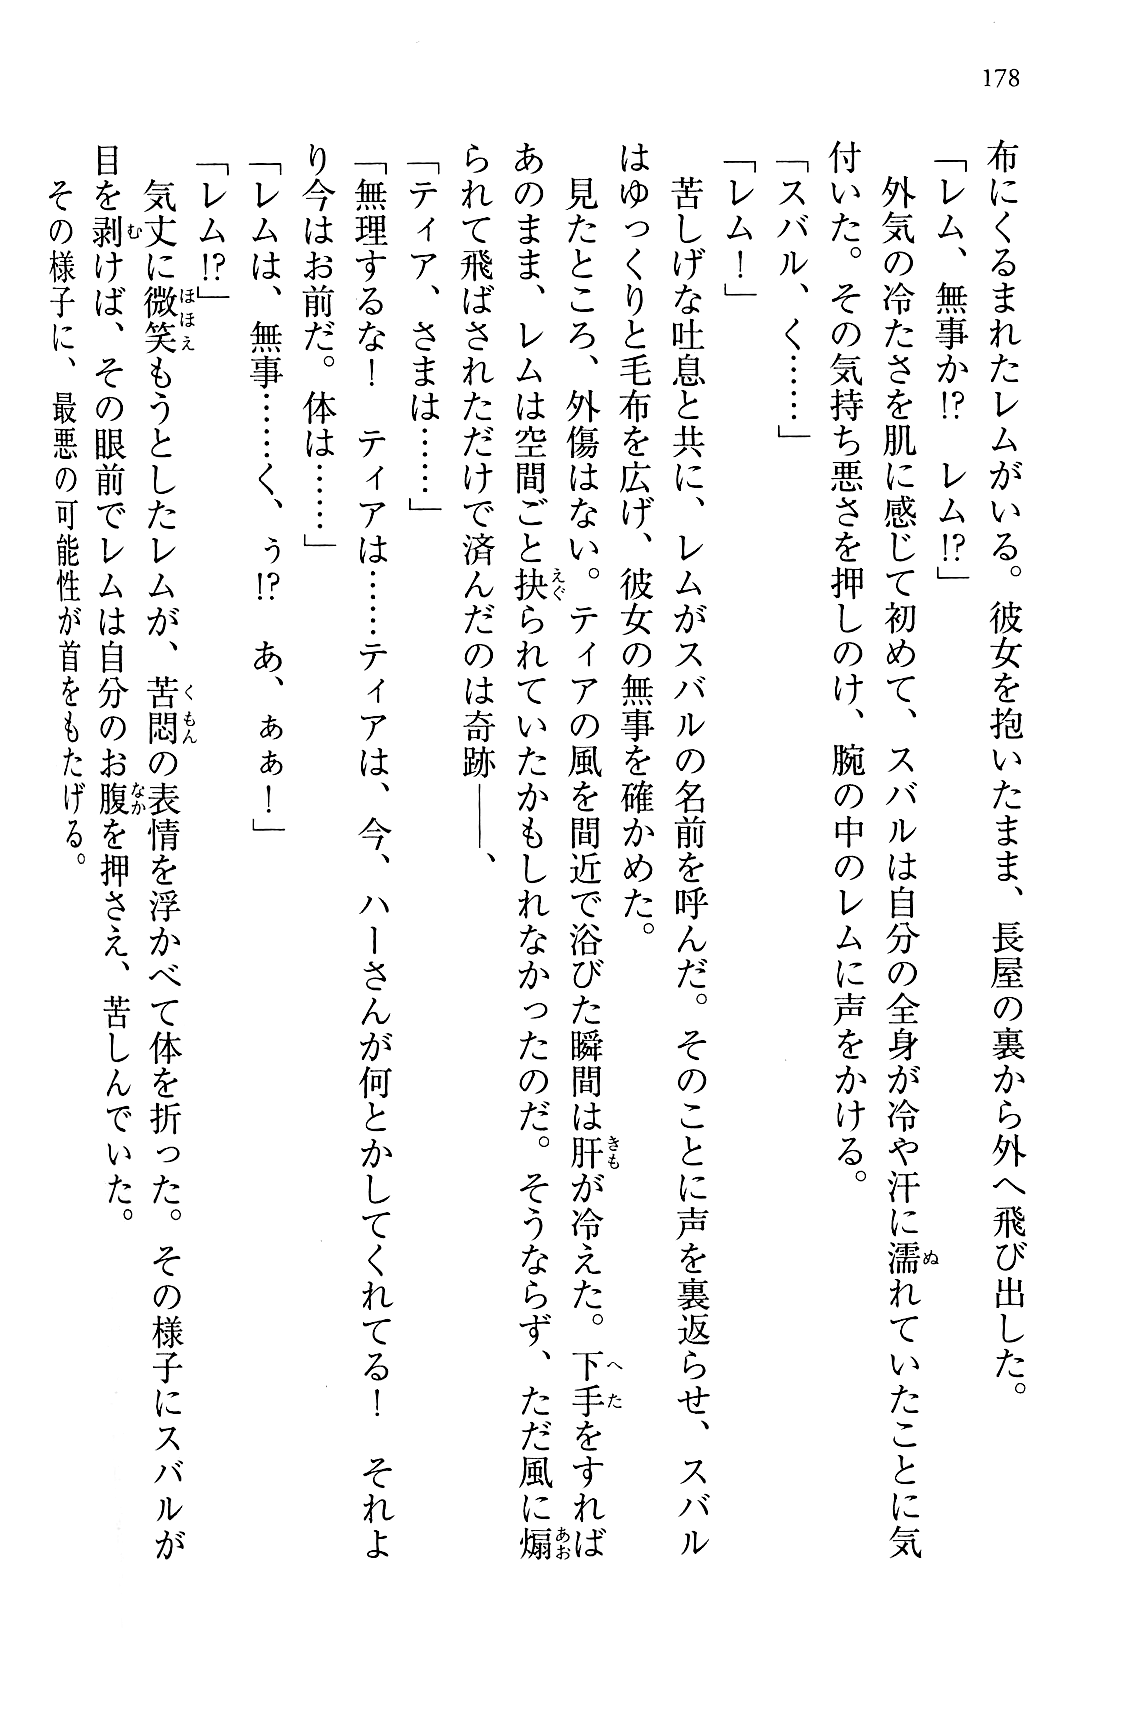 178
布にくるまれたレムがいる。彼女を抱いたまま、長屋の裏から外へ飛び出した。
「レム、無事か!?　レム!?」
　外気の冷たさを肌に感じて初めて、スバルは自分の全身が冷や汗に濡れていたことに気
付いた。その気持ち悪さを押しのけ、腕の中のレムに声をかける。
「スバル、く……」
「レム！」
　苦しげな吐息と共に、レムがスバルの名前を呼んだ。そのことに声を裏返らせ、スバル
はゆっくりと毛布を広げ、彼女の無事を確かめた。
　見たところ、外傷はない。ティアの風を間近で浴びた瞬間は肝が冷えた。下手をすれば
あのまま、レムは空間ごと抉られていたかもしれなかったのだ。そうならず、ただ風に煽
られて飛ばされただけで済んだのは奇跡――、
「ティア、さまは……」
「無理するな！　ティアは……ティアは、今、ハーさんが何とかしてくれてる！　それよ
り今はお前だ。体は……」
「レムは、無事……く、ぅ!?　あ、ぁぁ！」
「レム!?」
　気丈に微笑もうとしたレムが、苦悶の表情を浮かべて体を折った。その様子にスバルが
目を剥けば、その眼前でレムは自分のお腹を押さえ、苦しんでいた。
　その様子に、最悪の可能性が首をもたげる。